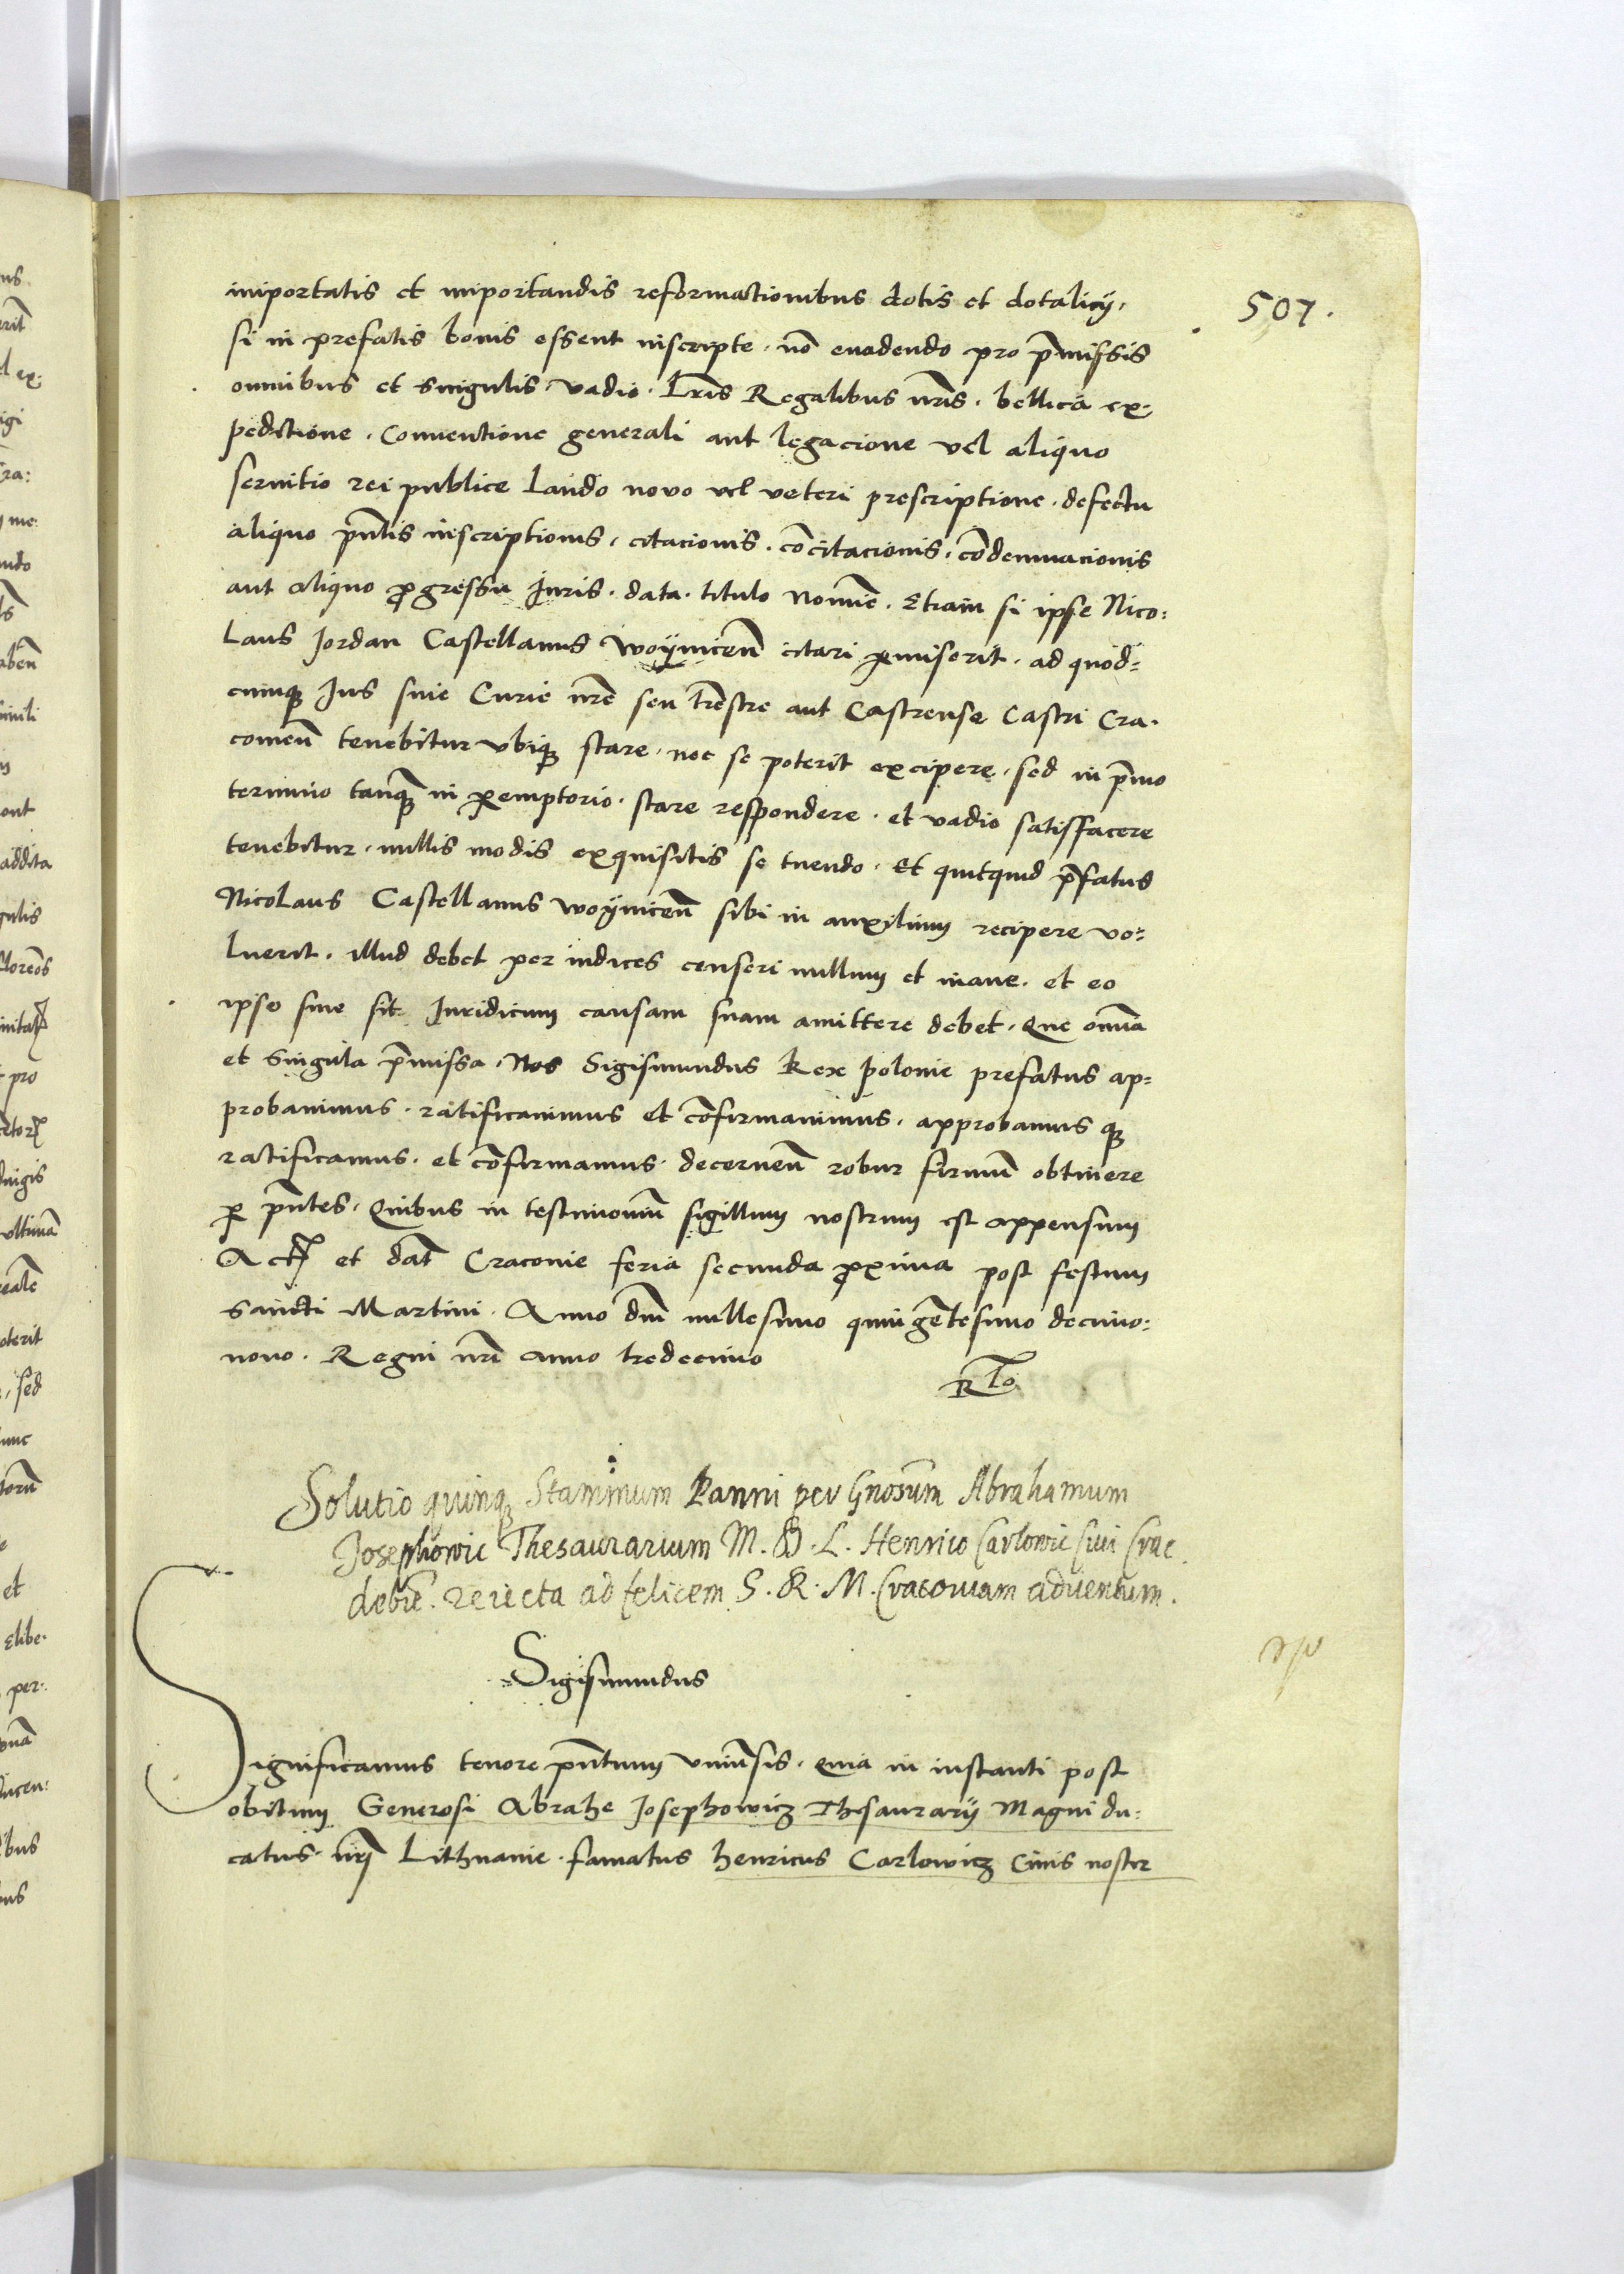 inportatis et inportandis reformationibus dotis et dotalicÿ,
507.
si in prefatis bonis essent inscripte, nō evadendo pro p̄missis
omnibus et singulis, vadio. Lr̄is Regalibus nr̄is, bellica ex-
peditione. Conventione generali aut legacione vel aliquo
servitio rei publice Laudo novo vel veteri prescriptione, defectu
aliquo pn̄tis inscriptionis, citacionis, cōcitacionis, cōdemnacionis
aut aliquo ꝓgressu Juris. data. titulo nomīe. Etiam si ipse Nico:
laus Jordan Castellanus Woÿniceñ citari ꝑmiserit. ad quod=
cumqꝫ Jus sive Curie nr̄e seu tr̄estre aut Castrense Castri Cra.
covieñ tenebitur ubiqꝫ stare. nec se poterit excipere, sed in p̄mo
termino tanqꝫ in ꝑemptorio. stare respondere. et vadio satisfacere
tenebitur. nullis modis exquisitis se tuendo. Et quitquid p̄fatus
Nicolaus Castellanus Woÿniceñ sibi in auxilium recipere vo=
luerit. illud debet per iudices censeri nullum et inane. et eo
ipso sine sit Juridicum causam suam amittere debet. Que om̄ia
et singula p̄missa. Nos Sigismundus Rex polonie prefatus ap=
probavimus. ratificavimus et cōfirmavimus. approbamus qꝫ
ratificamus. et cōfirmamus. decerneñ robur firmū obtinere
ꝑ pn̄tes. Quibus in testimoniū sigillum nostrum est appensum
Act̄ et dat̄ Cracovie feria secunda ꝓxima post festum
sancti Martini. Anno dn̄i millesimo quingētesimo decimo:
nono. Regni nr̄i anno tredecimo
Rᵗᵒ
Solutio quinqꝫ Staminum Panni per Gnosum̄ Abrahamum
Josephowic Thesaurarium M. D. L. Henrico Carlowic Civi Crac.
debīe. reiecta ad felicem S. R. M. Cracoviam adventum.
Sigismundus
Significamus tenore pn̄tium univ̄sis. Quia in instanti post
obitum Generosi Abrahe Josephowicz Thesaurarÿ Magni du:
catus nr̄i Lithuanie. famatus henricus Carlowicz Civis noster